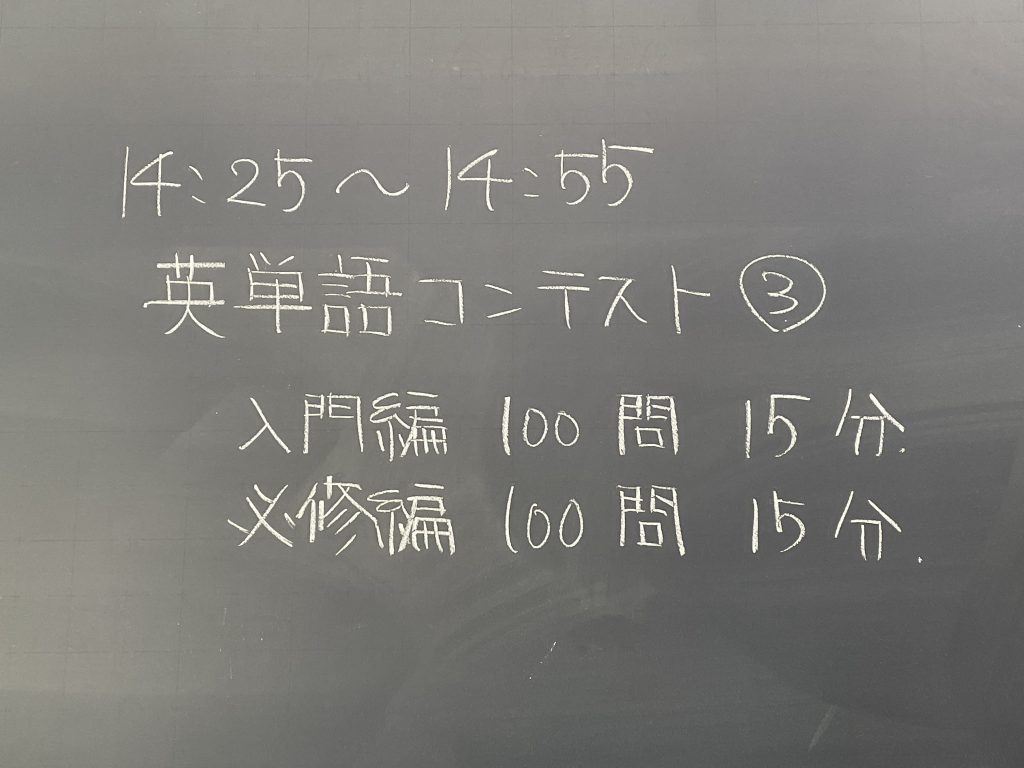 14:25～14:55
英単語コンテスト③
入門編 100問 15分.
必修編 100問 15分.